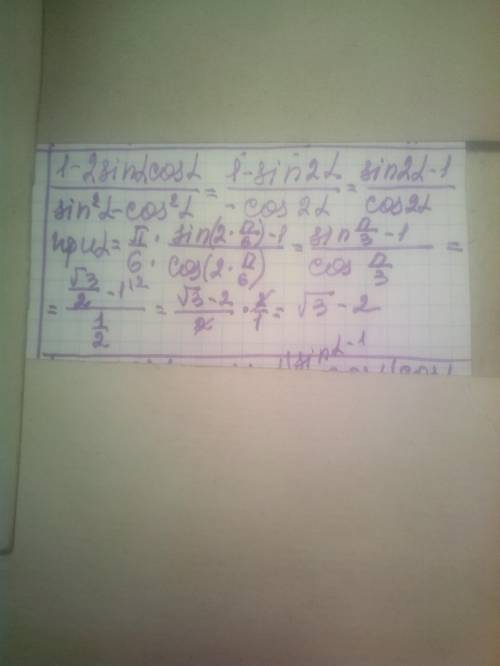 (1-2sinαcosα)/(sin²α-cos²α) = (1-sin2α)/(-cos2α) = (sin2α-1)/(cos2α)
при α = π/6: (sin(2·π/6)-1)/(cos(2·π/6)) = (sin π/3 -1)/(cos π/3) =
= (√3/2 - 1^{\2})/(1/2) = (√3-2)/2 · 2/1 = √3-2
sinα-1